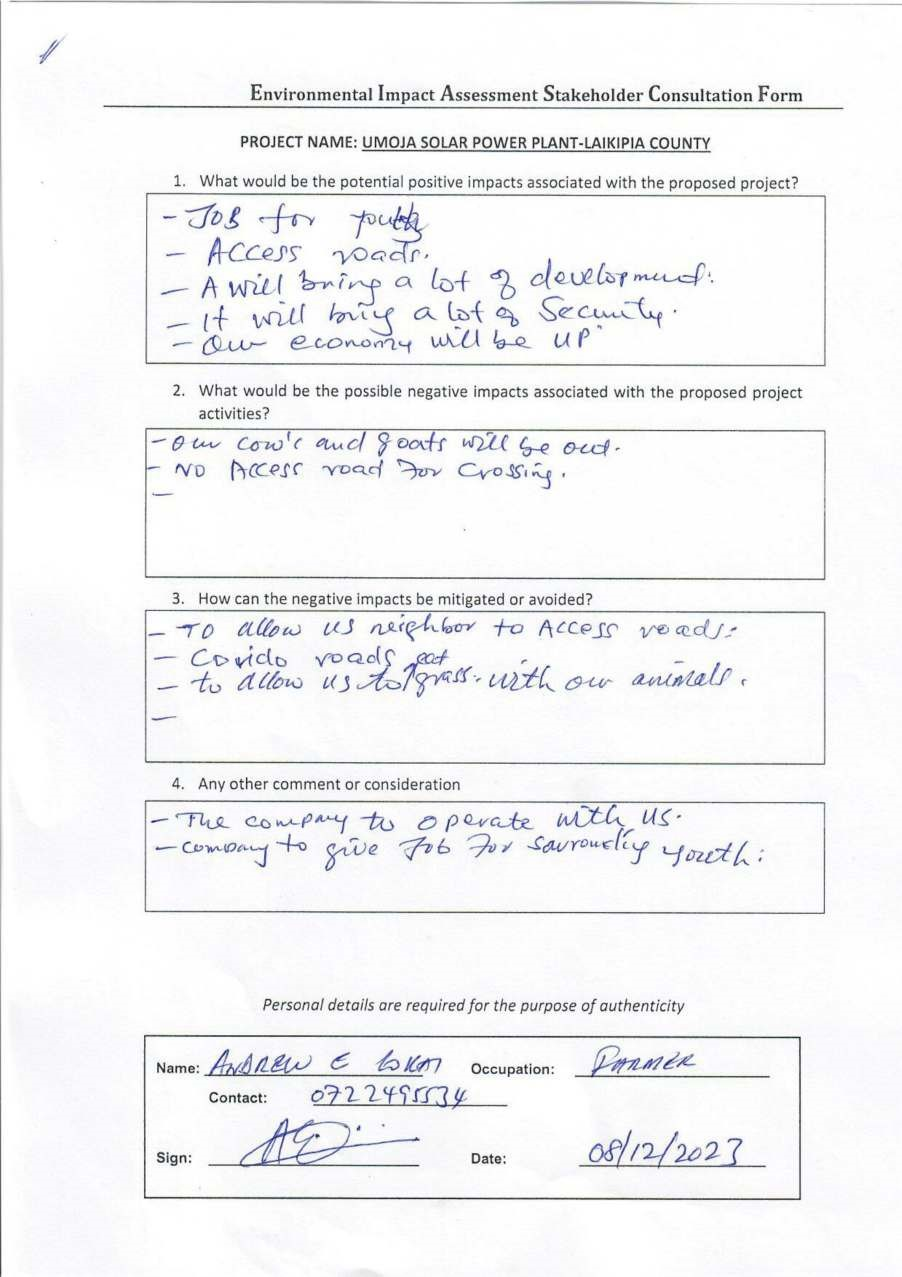 Environmental Impact Assessment Stakeholder Consultation Form
PROJECT NAME: UMOJA SOLAR POWER PLANT-LAIKIPIA COUNTY
1. What would be the potential positive impacts associated with the proposed project?
- JOB for youth
- Access roads.
- A will bring a lot of development.
- It will bring a lot of Security.
- Our economy will be UP
2. What would be the possible negative impacts associated with the proposed project
activities?
- Our cow's and goats will be out.
- NO Access road For Crossing.
-
3. How can the negative impacts be mitigated or avoided?
- TO allow us neighbor to Access roads.
- Corido roads
- to allow us to eat grass. with our animals.
-
4. Any other comment or consideration
- The company to operate with us.
- company to give Job For sourrounding youth:
Personal details are required for the purpose of authenticity
Name: ANDREW E Occupation: FARMER
Contact: 0722495534
Sign: Date: 08/12/2023